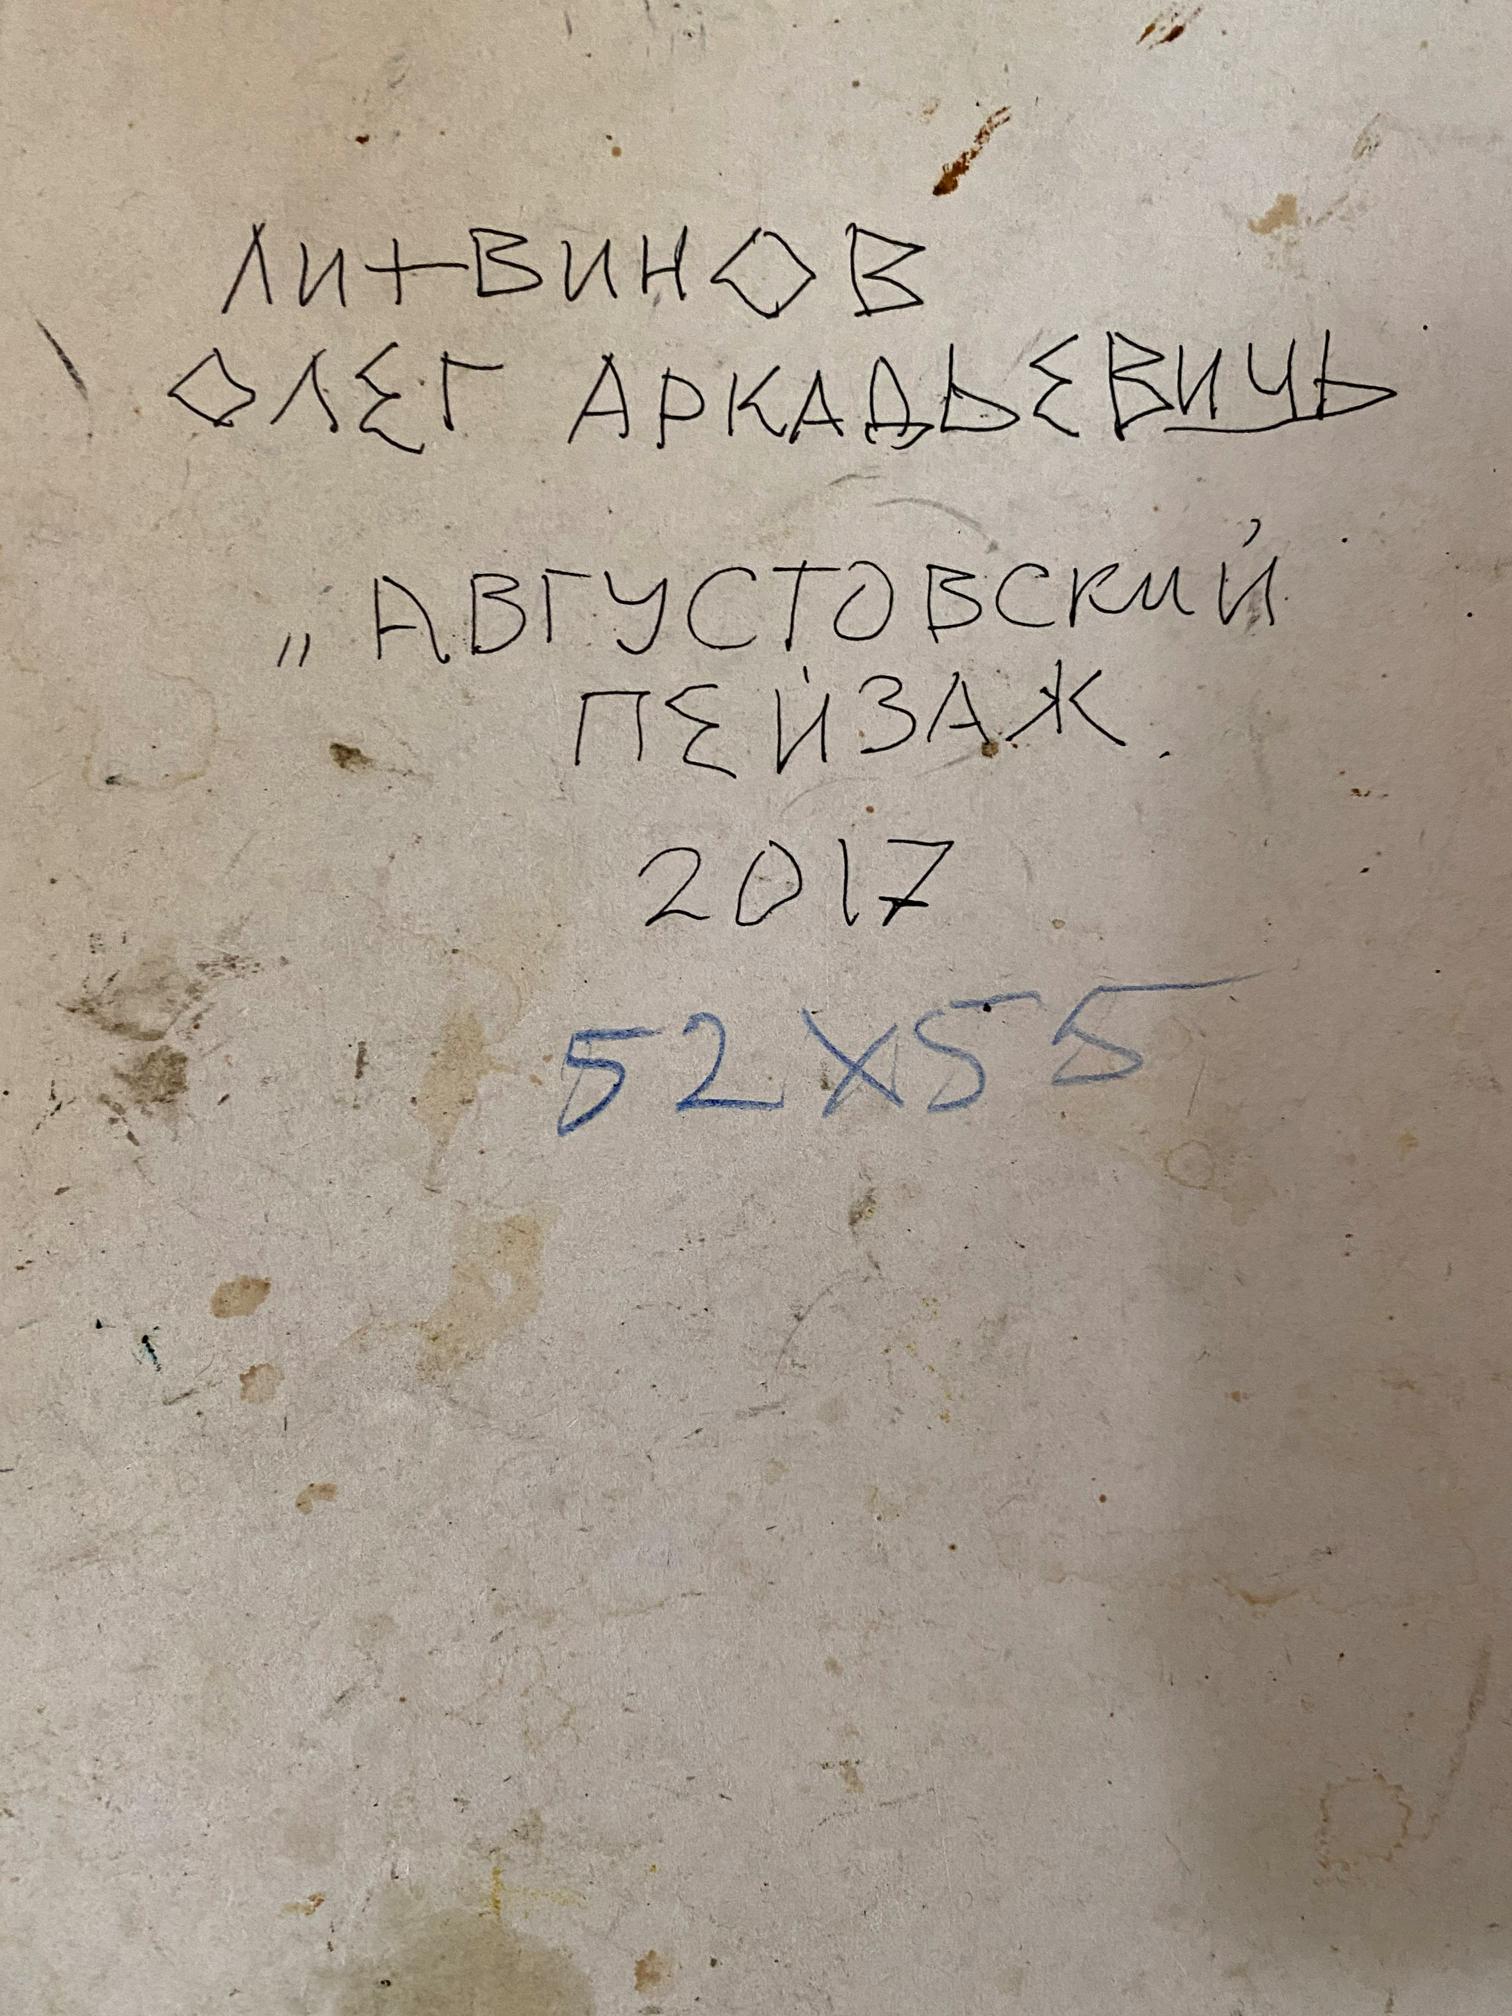 ЛИТВИНОВ
ОЛЕГ АРКАДЬЕВИЧЬ
„АВГУСТОВСКИЙ
ПЕЙЗАЖ.
2017
52X55